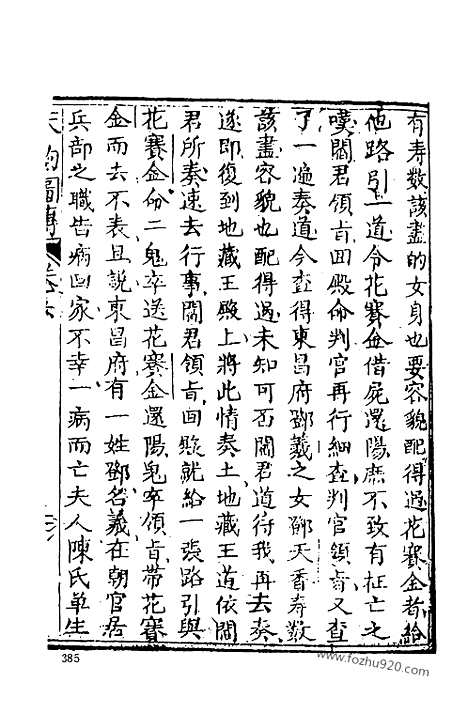 有寿数該盡的女身也要容貌配得過花賽金者給
他路引一道令花賽金借屍還陽庶不致有枉亡之
嘆閻君領旨回殿命判官再行細查判官領旨又查
了一遍奏道今查得東昌府鄧羲之女鄧天香寿数
該盡容貌也配得過未知可否閻君道待我再去奏
遂即復到地藏王殿上將此情奏上地藏王道依閻
君所奏速去行事閻君領旨回殿就給一張路引與
花賽金命二鬼卒送花賽金還陽鬼卒領旨帶花賽
金而去不表且説東昌府有一姓鄧名羲在朝官居
兵部之職告病回家不幸一病而亡夫人陳氏單生
385
www.fozhu920.com